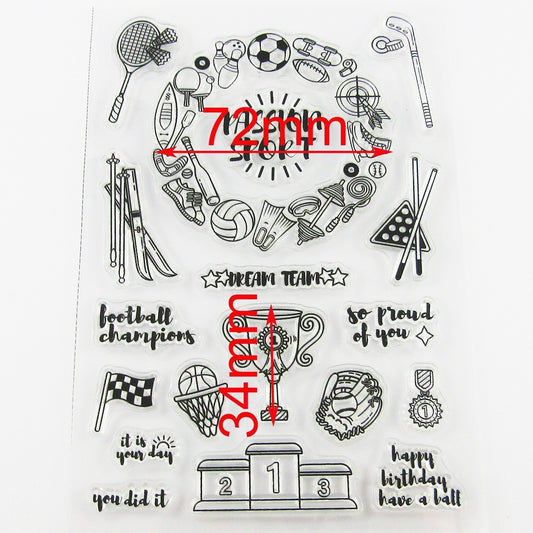 PASSION
72mm
SPORT
DREAM TEAM
football
champions
so proud
of you
34mm
1
1
it is
your day
you did it
2 1 3
happy
birthday
have a ball